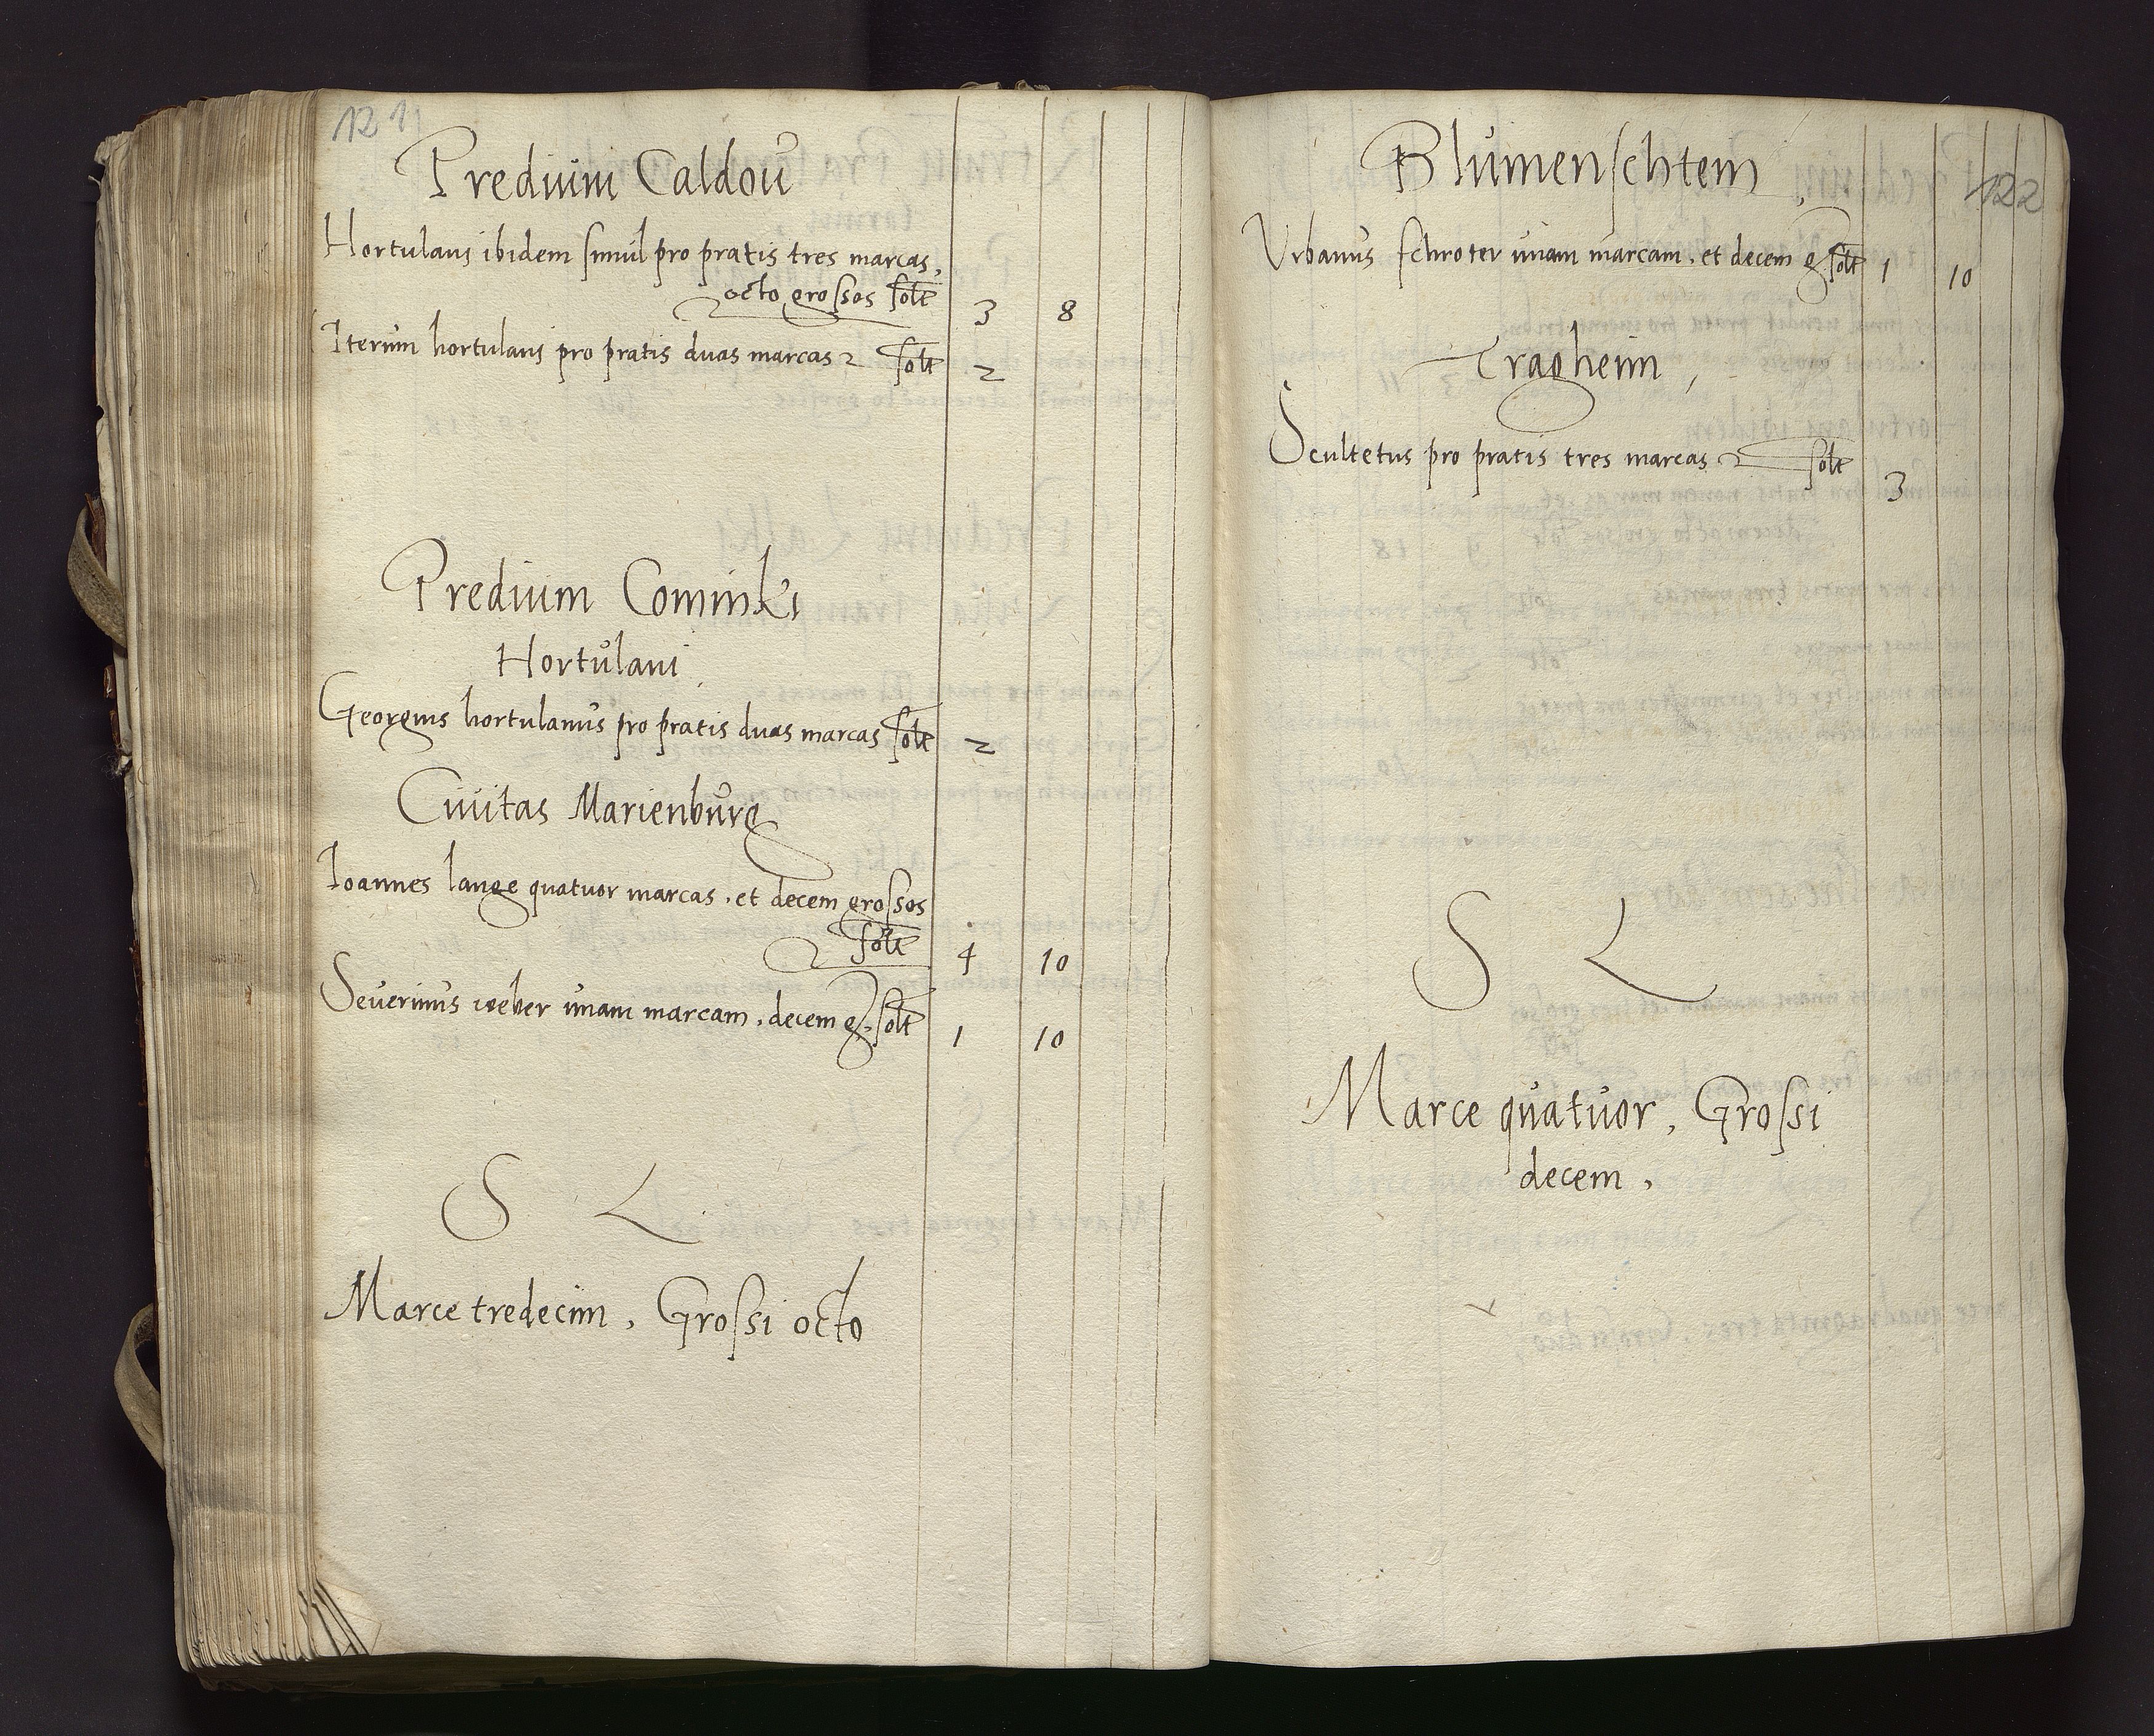 121
Predium Caldou
Hortulani ibidem simul pro pratis tres marcas,
octo grossos solt 3 8
Iterum hortulani pro pratis duas marcas solt 2
Predium Cominki
Hortulani
Georgius hortulanus pro pratis duas marcas solt 2
Civitas Marienburg
Ioannes lange quatuor marcas, et decem grossos
solt 4 10
Severinus weber unam marcam, decem g. solt 1 10
S L
Marce tredecim, Grossi octo
Blumenschtem
122
Urbanus schroter unam marcam, et decem g solt 1 10
Tragheim,
Scultetus pro pratis tres marcas solt 3
S L
Marce quatuor, Grossi
decem,